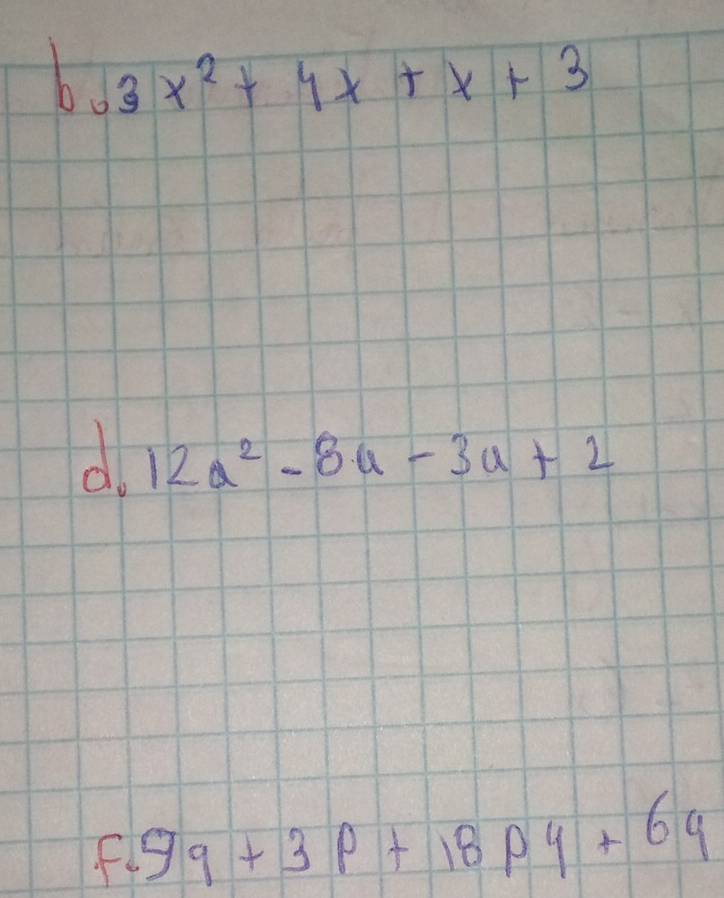 b. 3x² + 4x + x + 3
d. 12a² - 8a - 3a + 2
f. 9q + 3p + 18pq + 6q